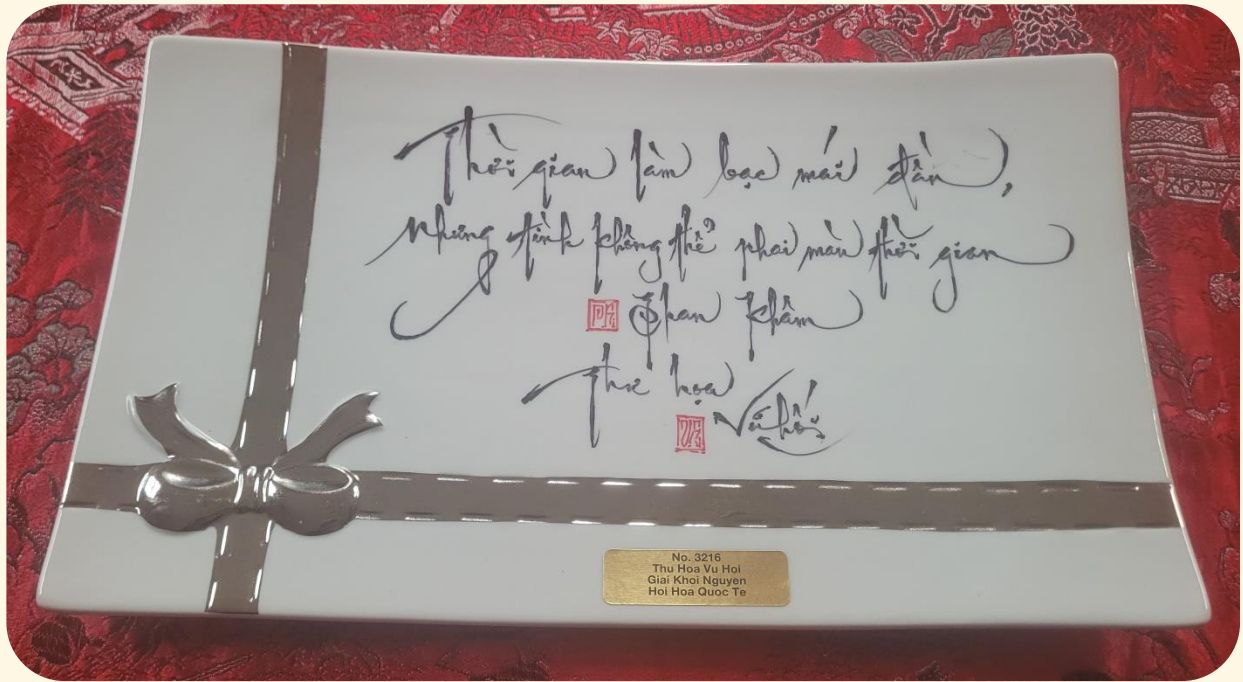 Thời gian làm bạc mái đầu,
nhưng tình không thể phai màu thời gian
Phan Khâm
Thư họa Vũ Hối
No. 3216
Thu Hoa Vu Hoi
Giai Khoi Nguyen
Hoi Hoa Quoc Te